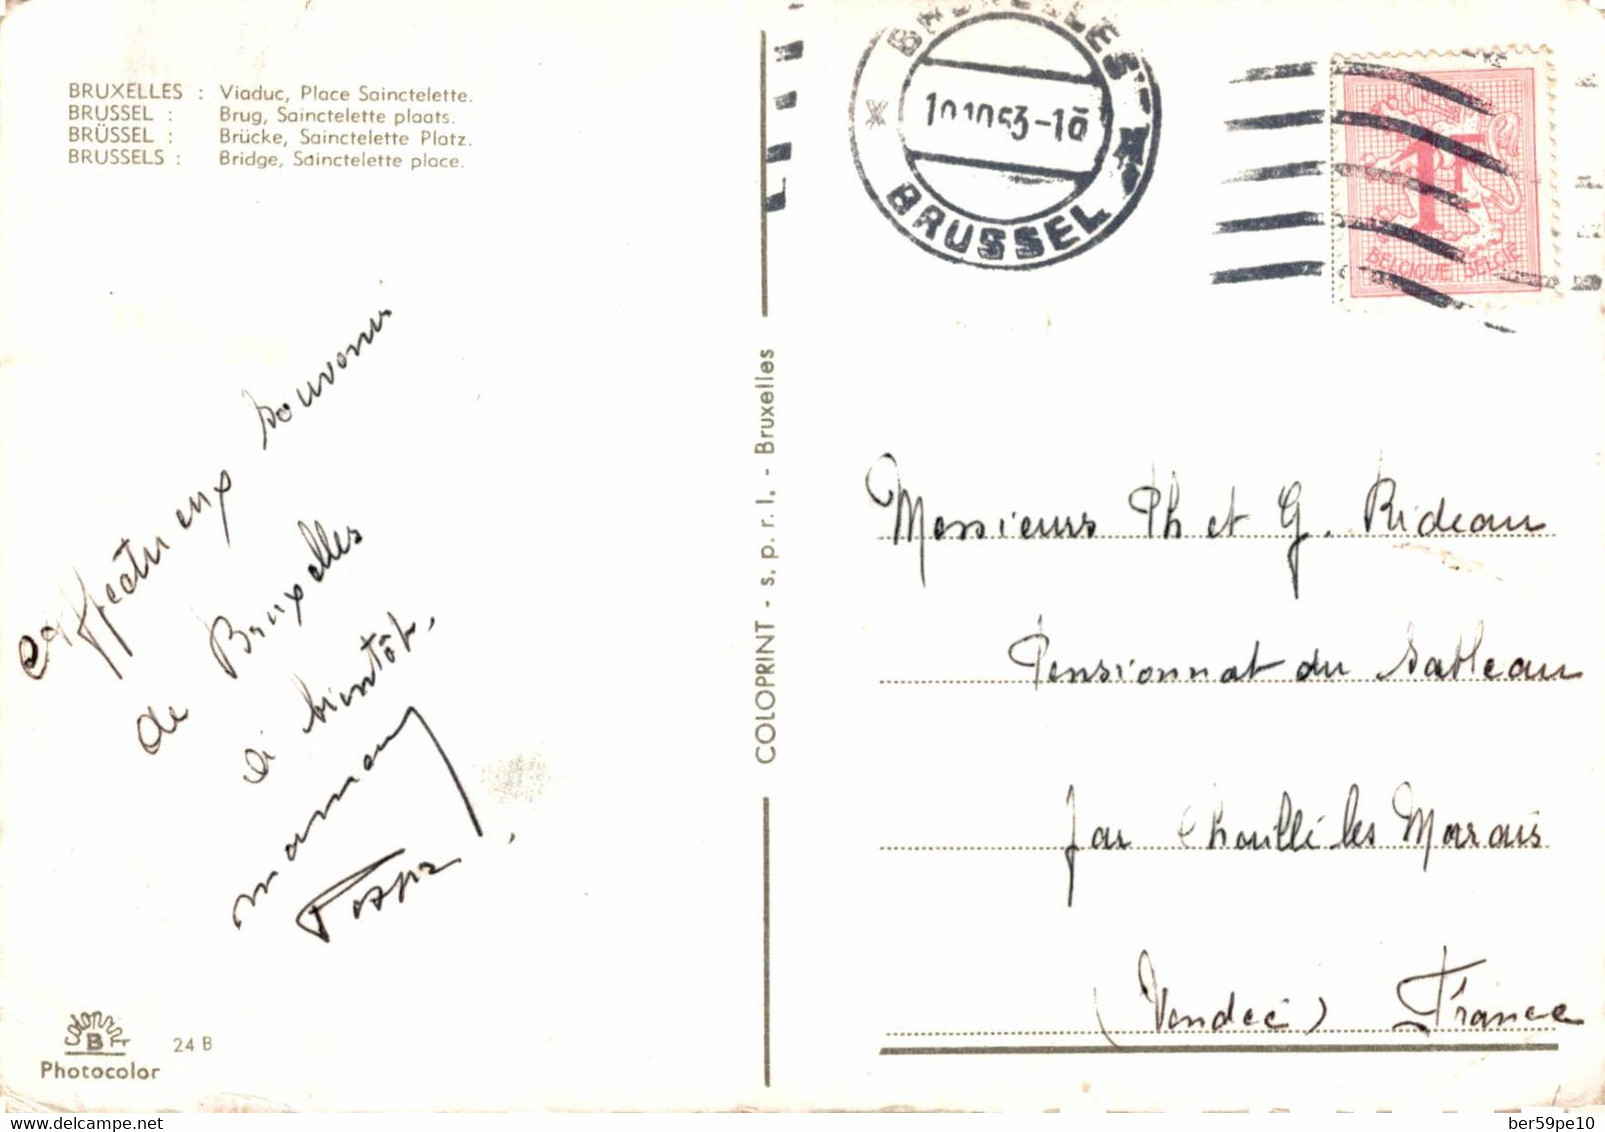 BRUXELLES : Viaduc, Place Sainctelette.
BRUSSEL : Brug, Sainctelette plaats.
BRÜSSEL : Brücke, Sainctelette Platz.
BRUSSELS : Bridge, Sainctelette place.
affectueux souvenir
de Bruxelles
à bientôt,
maman
Photocolor
24 B
COLOPRINT - s.p.r.l. - Bruxelles
BRUXELLES
BRUSSEL
1F
BELGIQUE BELGIË
Messieurs Ph et G. Rideau
Pensionnat du Sableau
par Chaillé les Marais
(Vendée) France
delcampe.net
ber59pe10